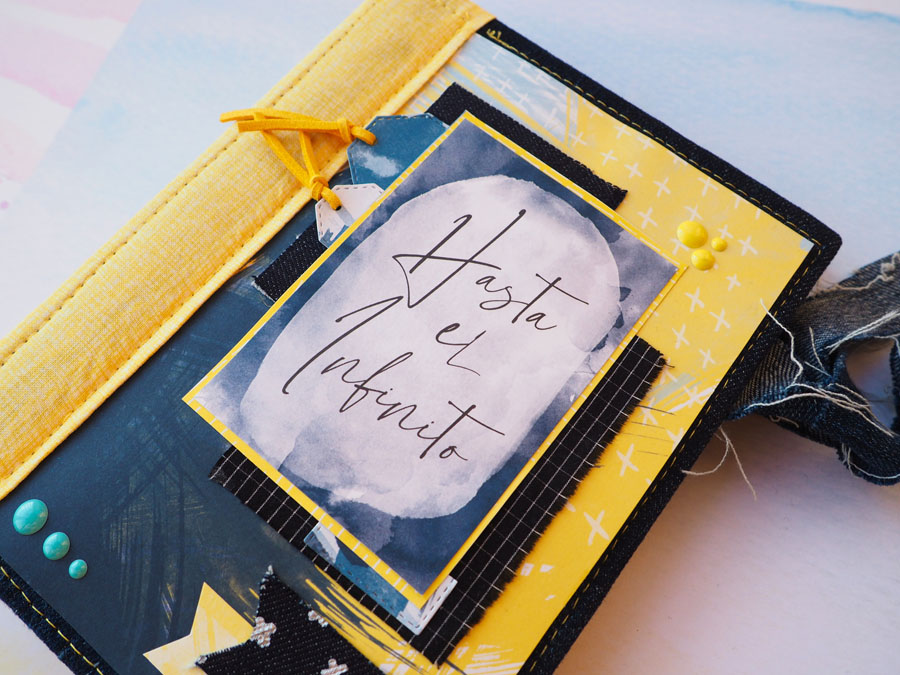 Hasta
el
Infinito